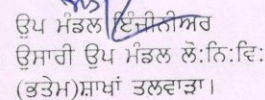 ਉਪ ਮੰਡਲ ਇੰਜੀਨੀਅਰ
ਉਸਾਰੀ ਉਪ ਮੰਡਲ ਲੋ:ਨਿ:ਵਿ:
(ਭਤੇਮ)ਸ਼ਾਖਾਂ ਤਲਵਾੜਾ।